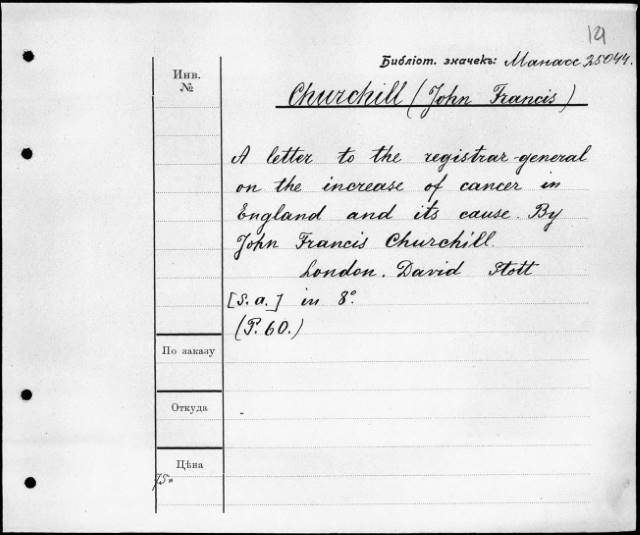 19
Библіот. значекъ: Манасс 25044.
Инв.
№
Churchill (John Francis)
A letter to the registrar-general
on the increase of cancer in
England and its cause. By
John Francis Churchill.
London. David Stott
[S. a.] in 8°
(P. 60.)
По заказу
Откуда
Цѣна
75